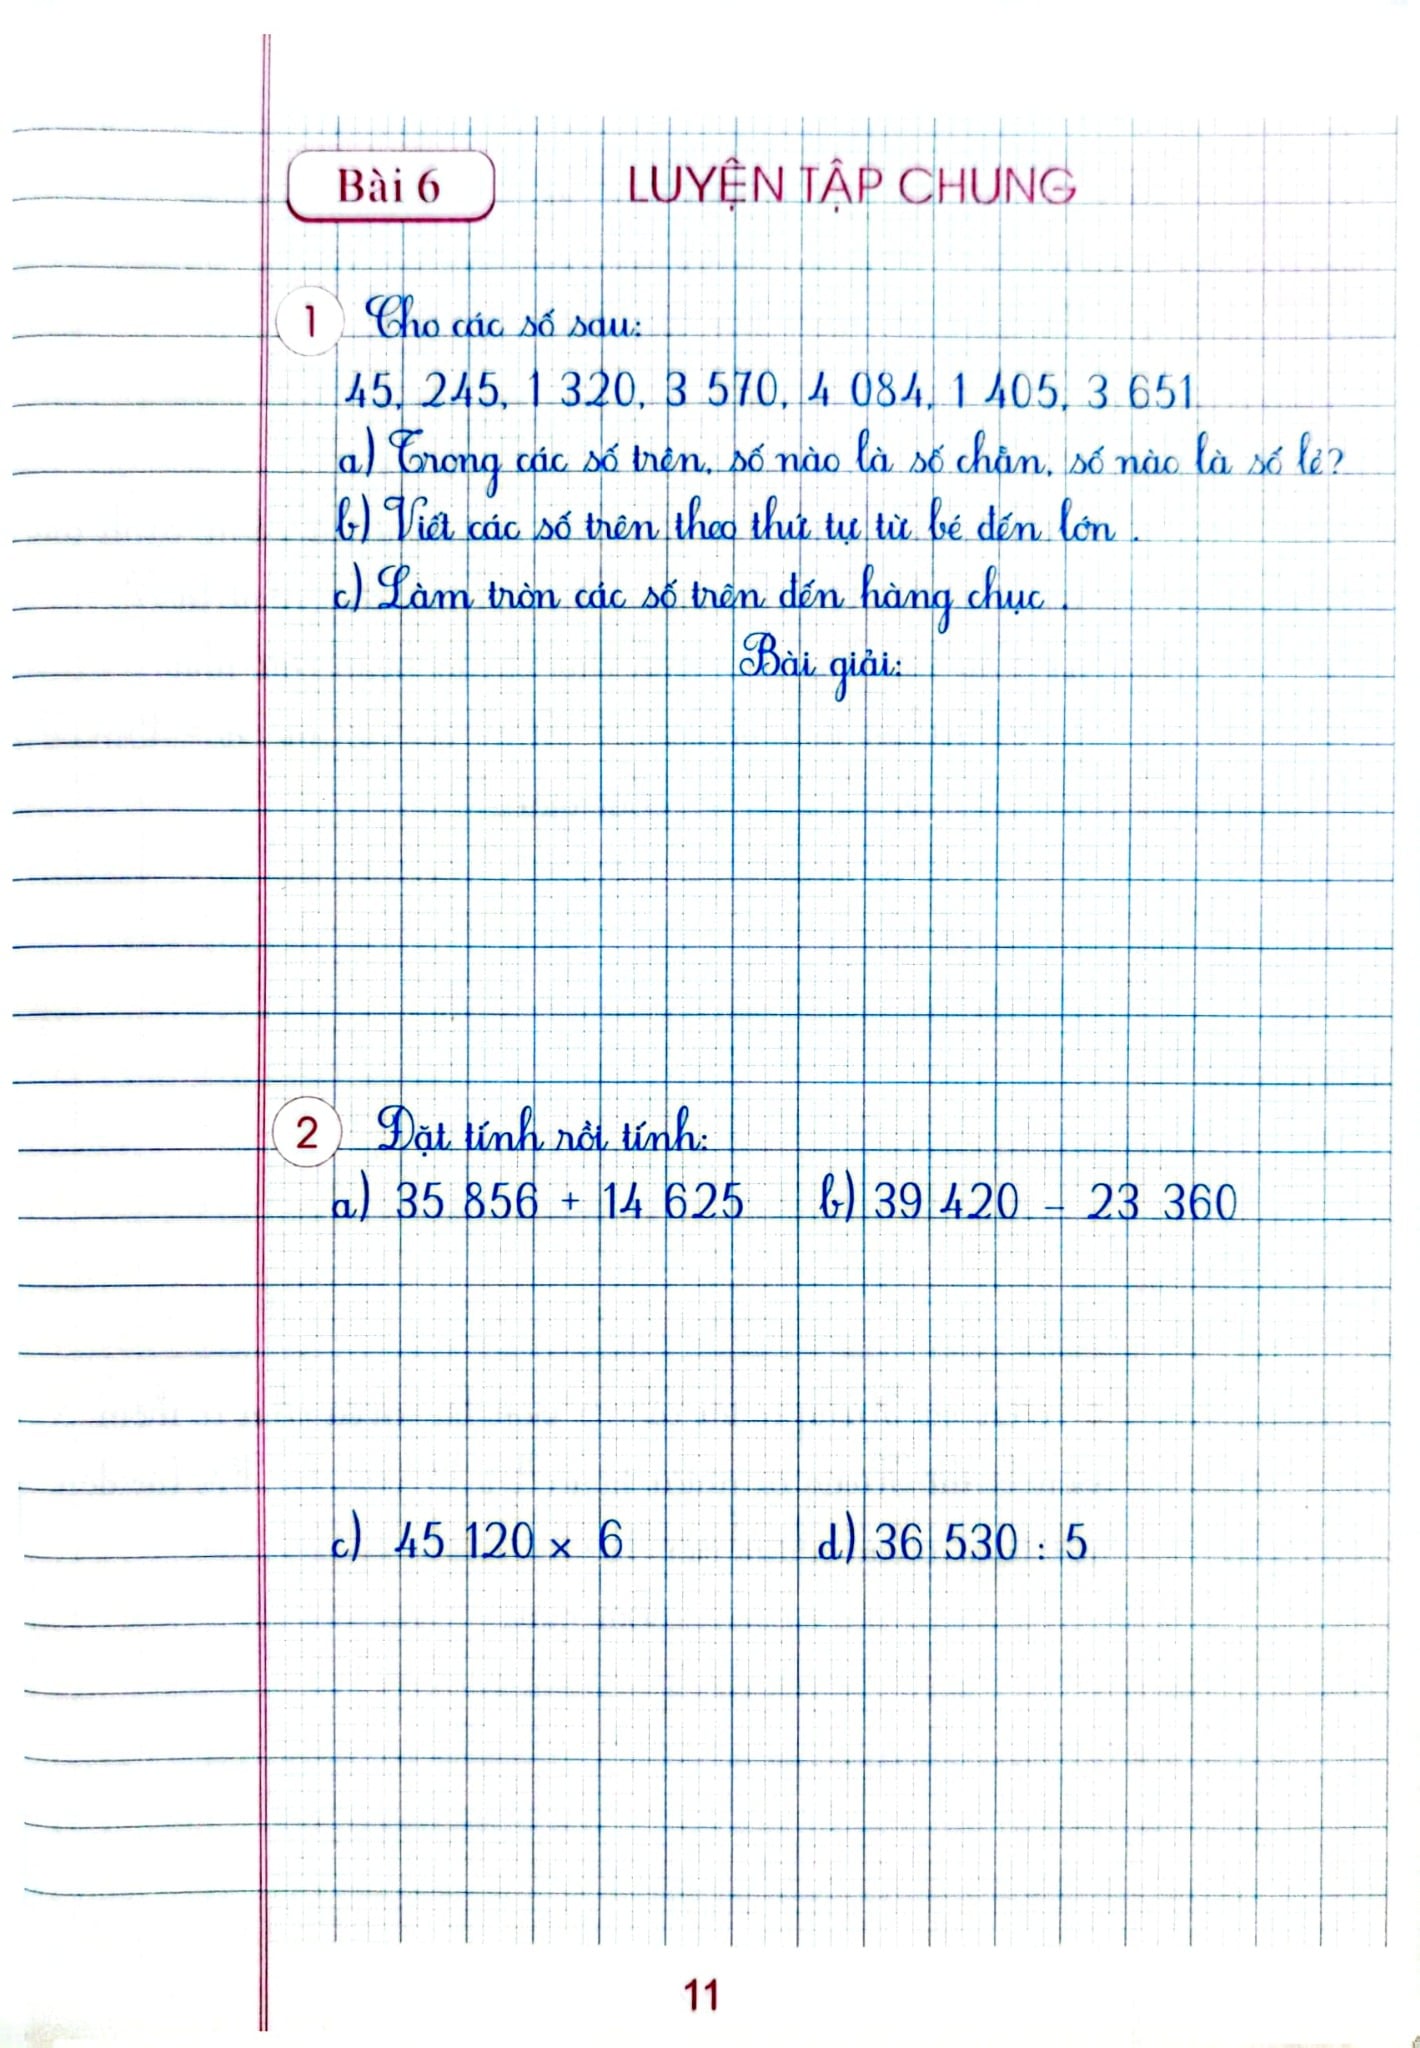 Bài 6 LUYỆN TẬP CHUNG
1 Cho các số sau:
45, 245, 1 320, 3 570, 4 084, 1 405, 3 651
a) Trong các số trên, số nào là số chẵn, số nào là số lẻ?
b) Viết các số trên theo thứ tự từ bé đến lớn.
c) Làm tròn các số trên đến hàng chục.
Bài giải:
2 Đặt tính rồi tính:
a) 35 856 + 14 625 b) 39 420 - 23 360
c) 45 120 x 6 d) 36 530 : 5
11